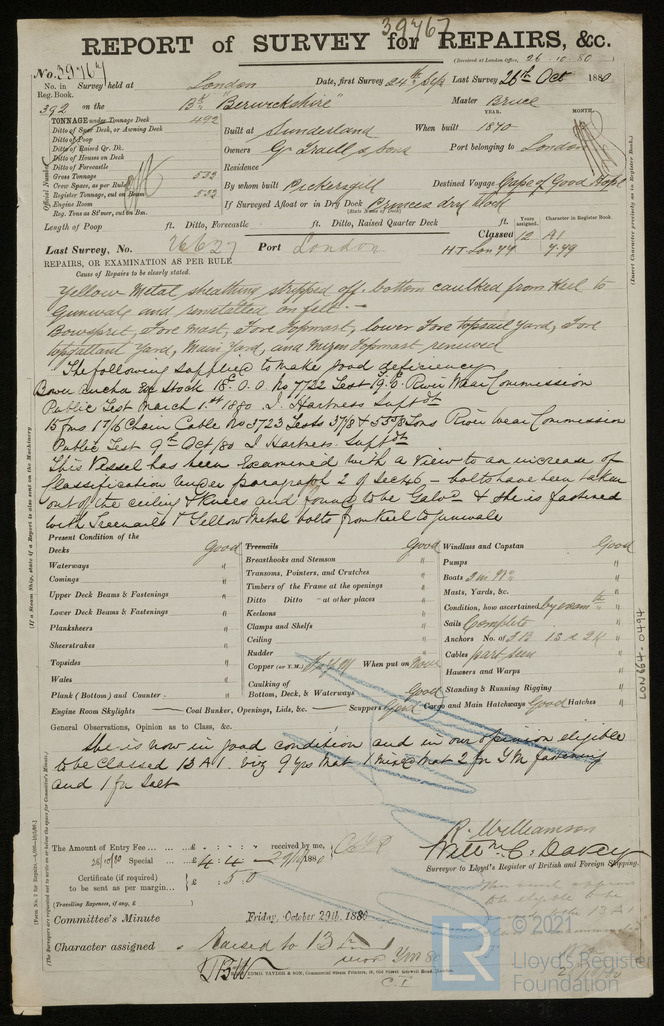 39767
REPORT of SURVEY for REPAIRS, &c.
(Received at London Office, 26.10.80)
No. 39767
No. in Reg. Book. Survey held at London Date, first Survey 24th Sep Last Survey 26th Oct 1880
392 on the Bk "Berwickshire" Master Bruce
TONNAGE under Tonnage Deck 492
Ditto of Spar Deck, or Awning Deck
Ditto of Poop
Ditto of Raised Qr. Dk.
Ditto of Houses on Deck
Ditto of Forecastle
Gross Tonnage 532
Crew Space, as per Rule
Register Tonnage, cut on Beam 532
Engine Room
Reg. Tons as St'mer, cut on Bm.
Official Number
YEAR. MONTH.
Built at Sunderland When built 1870
Owners G. Traill & Sons Port belonging to London
Residence
By whom built Pickersgill Destined Voyage Cape of Good Hope
If Surveyed Afloat or in Dry Dock Princes dry dock
(State Name of Dock)
Length of Poop ft. Ditto, Forecastle ft. Ditto, Raised Quarter Deck ft.
Years assigned. Character in Register Book.
Classed 12 A1
Last Survey, No. 26627 Port London
7.79
REPAIRS, OR EXAMINATION AS PER RULE
Cause of Repairs to be clearly stated.
Yellow Metal sheathing stripped off bottom caulked from Keel to
Gunwale and remetalled on felt.—
Bowsprit, Fore Mast, Fore Topmast, lower Fore topsail yard, Fore
topgallant Yard, Main Yard, and Mizen Topmast renewed
The following supplied to make good deficiency
Bower ancho Ex Stock 18c. 0. 0. No 7722 Test 19. 6. River Wear Commission
Public Test March 1st 1880 J. Hartness Supt dt
15 fms 1 7/16 Chain Cable No 3723 Tests 37/8 & 55 7/8 Tons River wear Commission
Public Test 9th Oct/80 J Hartness Supt dt
This Vessel has been Examined with a View to an increase of
Classification under paragraph 2 of Sec 46 – bolts have been taken
out of the ceiling & Knees and found to be Galvd & she is fastened
with Treenails & Yellow Metal bolts from Keel to gunwale
Present Condition of the
Decks Good
Waterways "
Comings "
Upper Deck Beams & Fastenings "
Lower Deck Beams & Fastenings "
Planksheers "
Sheerstrakes "
Topsides "
Wales "
Plank (Bottom) and Counter "
Engine Room Skylights — Coal Bunker, Openings, Lids, &c. — Scuppers Good Cargo and Main Hatchways Good Hatches "
Treenails Good
Breasthooks and Stemson "
Transoms, Pointers, and Crutches "
Timbers of the Frame at the openings "
Ditto Ditto at other places "
Keelsons "
Clamps and Shelfs "
Ceiling "
Rudder "
Copper (or Y.M.) When put on Now
Caulking of Bottom, Deck, & Waterways Good
Windlass and Capstan Good
Pumps "
Boats 3 in No "
Masts, Yards, &c. "
Condition, how ascertained by examtn "
Sails Complete
Anchors No. of 3 B 1 S & 2 K
Cables part seen
Hawsers and Warps "
Standing & Running Rigging "
General Observations, Opinion as to Class, &c.
She is now in good condition and in our opinion eligible
to be classed 13 A1. viz 9 yrs Mat 1 mixed Mat 2 for Y M fastening
and 1 for Salt
R. Williamson
Willm. C. Davey
Surveyor to Lloyd's Register of British and Foreign Shipping.
The Amount of Entry Fee ... £ : : received by me,
28/10/80 Special ... £ 4 : 4 : 29/10/1880
Certificate (if required) £ : 5 0
to be sent as per margin...
(Travelling Expenses, if any, £ )
Committee's Minute Friday, October 29th. 1880
Character assigned Raised to 13
YM 80
C F
EDMD. TAYLOR & SON, Commercial Steam Printers
LON 664-0494
(If a Steam Ship, state if a Report is also sent on the Machinery
(Insert Character precisely as in Register Book.)
© 2021
LR
Lloyd's Register
Foundation